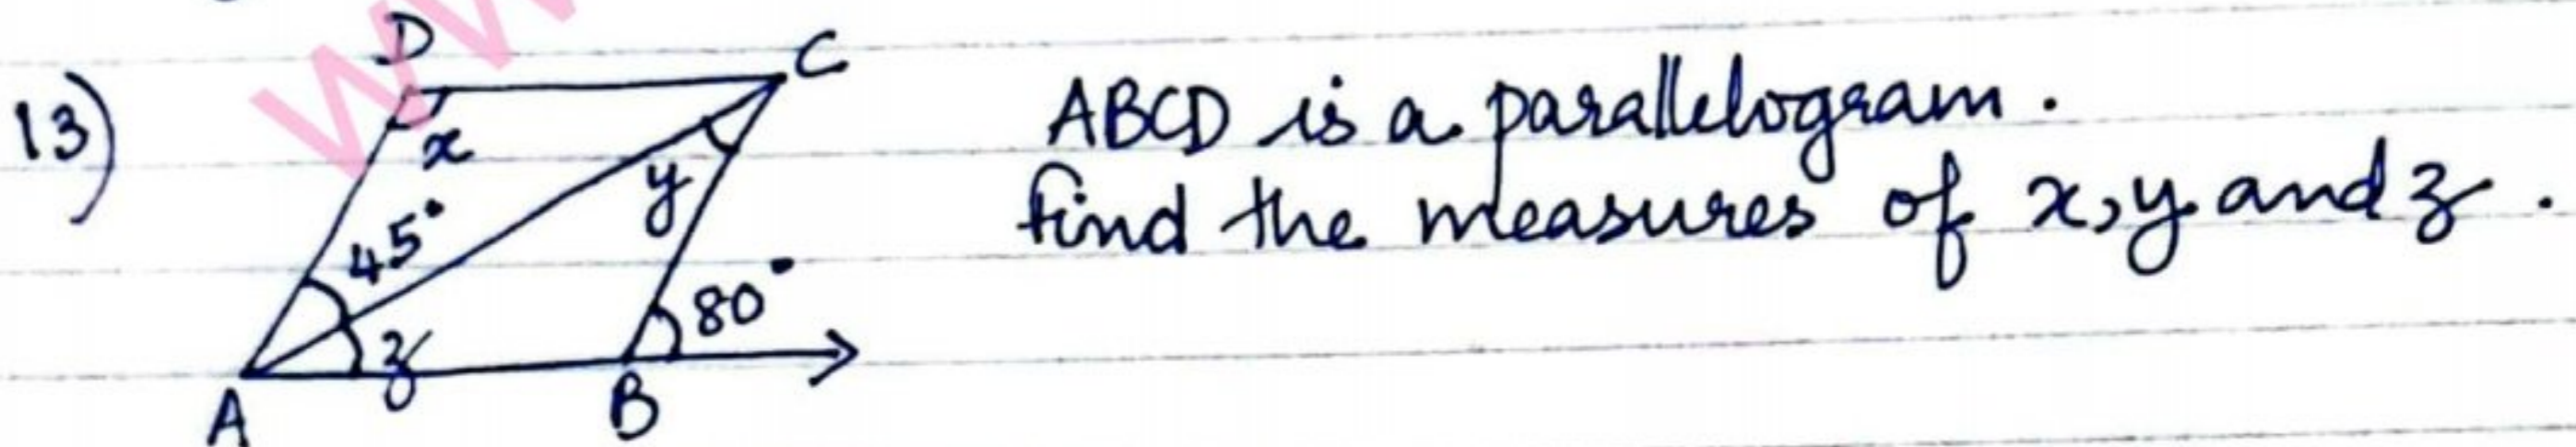 13)
D
C
x
y
45°
z
80°
A
B
ABCD is a parallelogram.
find the measures of x, y and z.